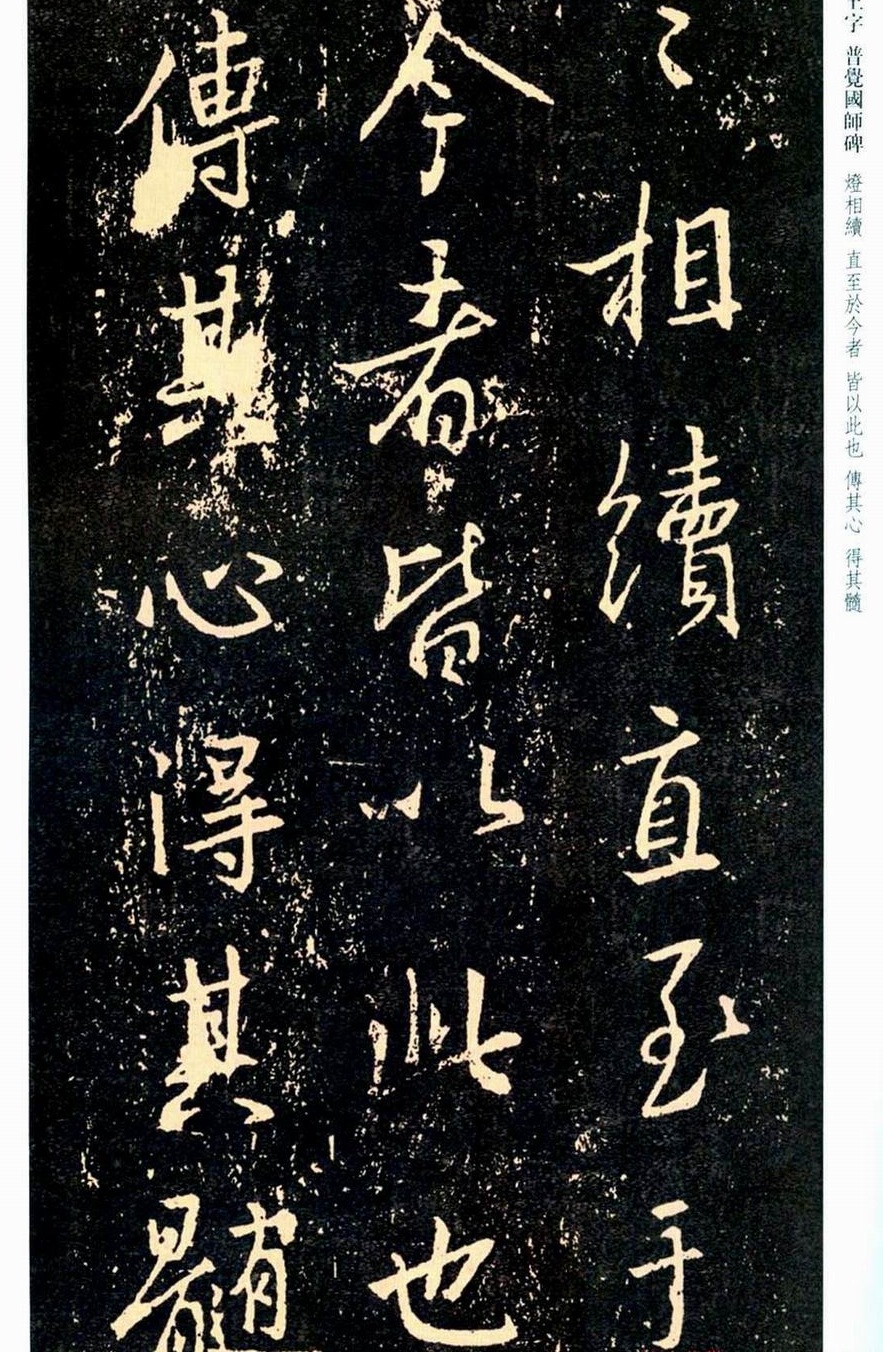 王字 普覺國師碑 燈相續 直至於今者 皆以此也 傳其心 得其髓
〻相續直至于
今者皆以此也
傳其心得其髓